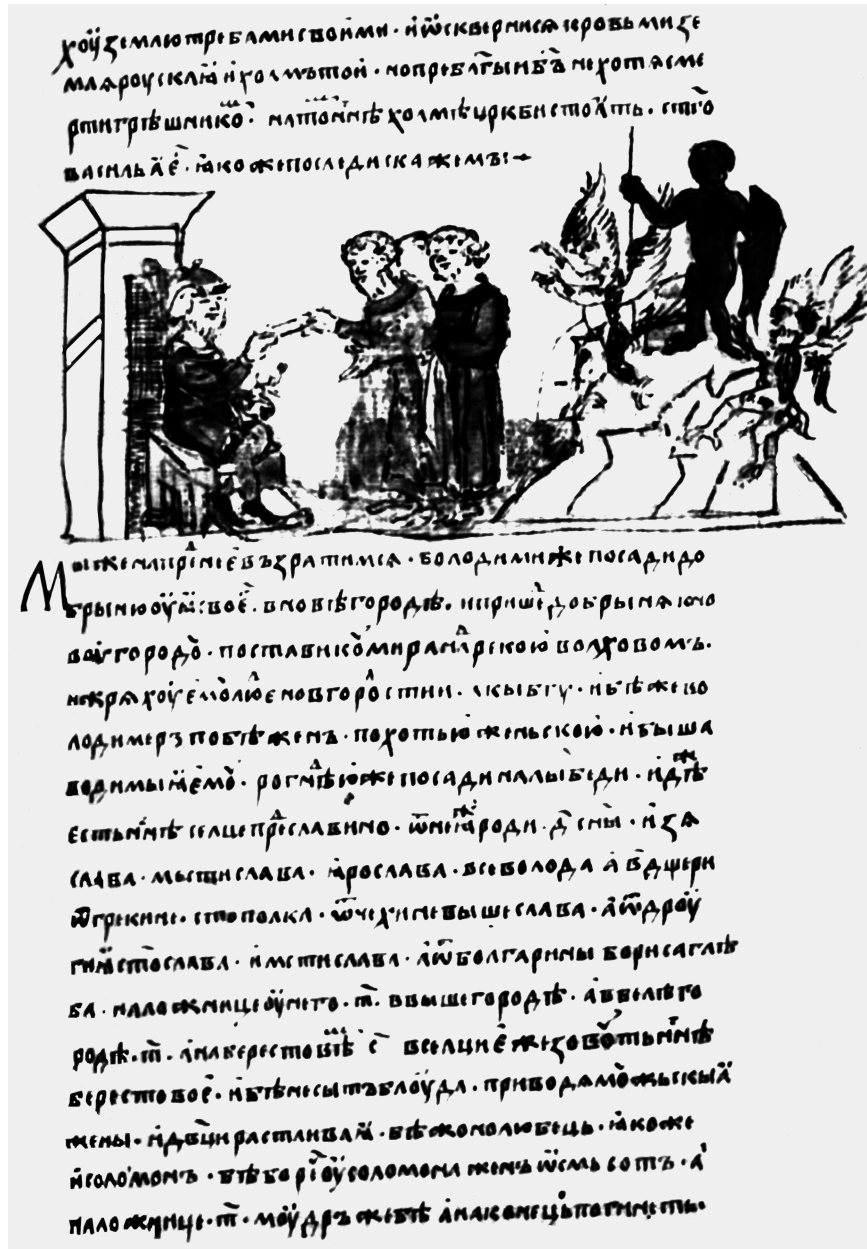 хоу҄ землю требами своими · и ѿсквернисѧ кровьми зе
млѧ роускаꙗ и холмъ той · но преблг҃ыи б҃ъ не хотѧ сме
рти грѣшнико · на томъ н҃нѣ холмѣ цр҃кви стоить · ст҃го
васильꙗ е · ꙗкоже последи скажемъ :~
Мы же на пре нее възратимсѧ · володимиже посади до
брыню оуꙗ своє · в новѣгородѣ · и прише добрынѧ к но
вугородо · постави комира на рекою волховомъ ·
и жрѧхоу ему людє новгородстии · акы б҃гу · и бѣ же во
лодимеръ побѣженъ · похотью женьскою · и быша
водимыꙗ ємо · рогнѣдь юже посади на лыбеди · идѣ
есть н҃нѣ селце преславино · ѿ неꙗ роди · д҃ сн҃ы · изѧ
слава · мьстислава · ꙗрослава · всеволода а в҃ дщери
ѿ грекине · ст҃ополка · ѿ чехине вышеслава · а ѿ дроу
гиꙗ ст҃ослава · и мстислава · а ѿ болгарины бориса глѣ
ба · наложнице оу него · т҃ · в вышегородѣ · а в белѣго
родѣ · т҃ · а на берестовѣмь с҃ в селци еже зовоть н҃нѣ
берестовоє · и бѣ несытъ блоуда · приводѧ можьскыꙗ
жены · и дв҃ци растлѣваꙗ · бѣ же женолюбець · ꙗкоже
и соломонъ · бѣ бо рⷱ҇е оу соломона женъ ѿсмь сотъ · а
наложнице · т҃ · моудръ же бѣ а наконець погибе се же